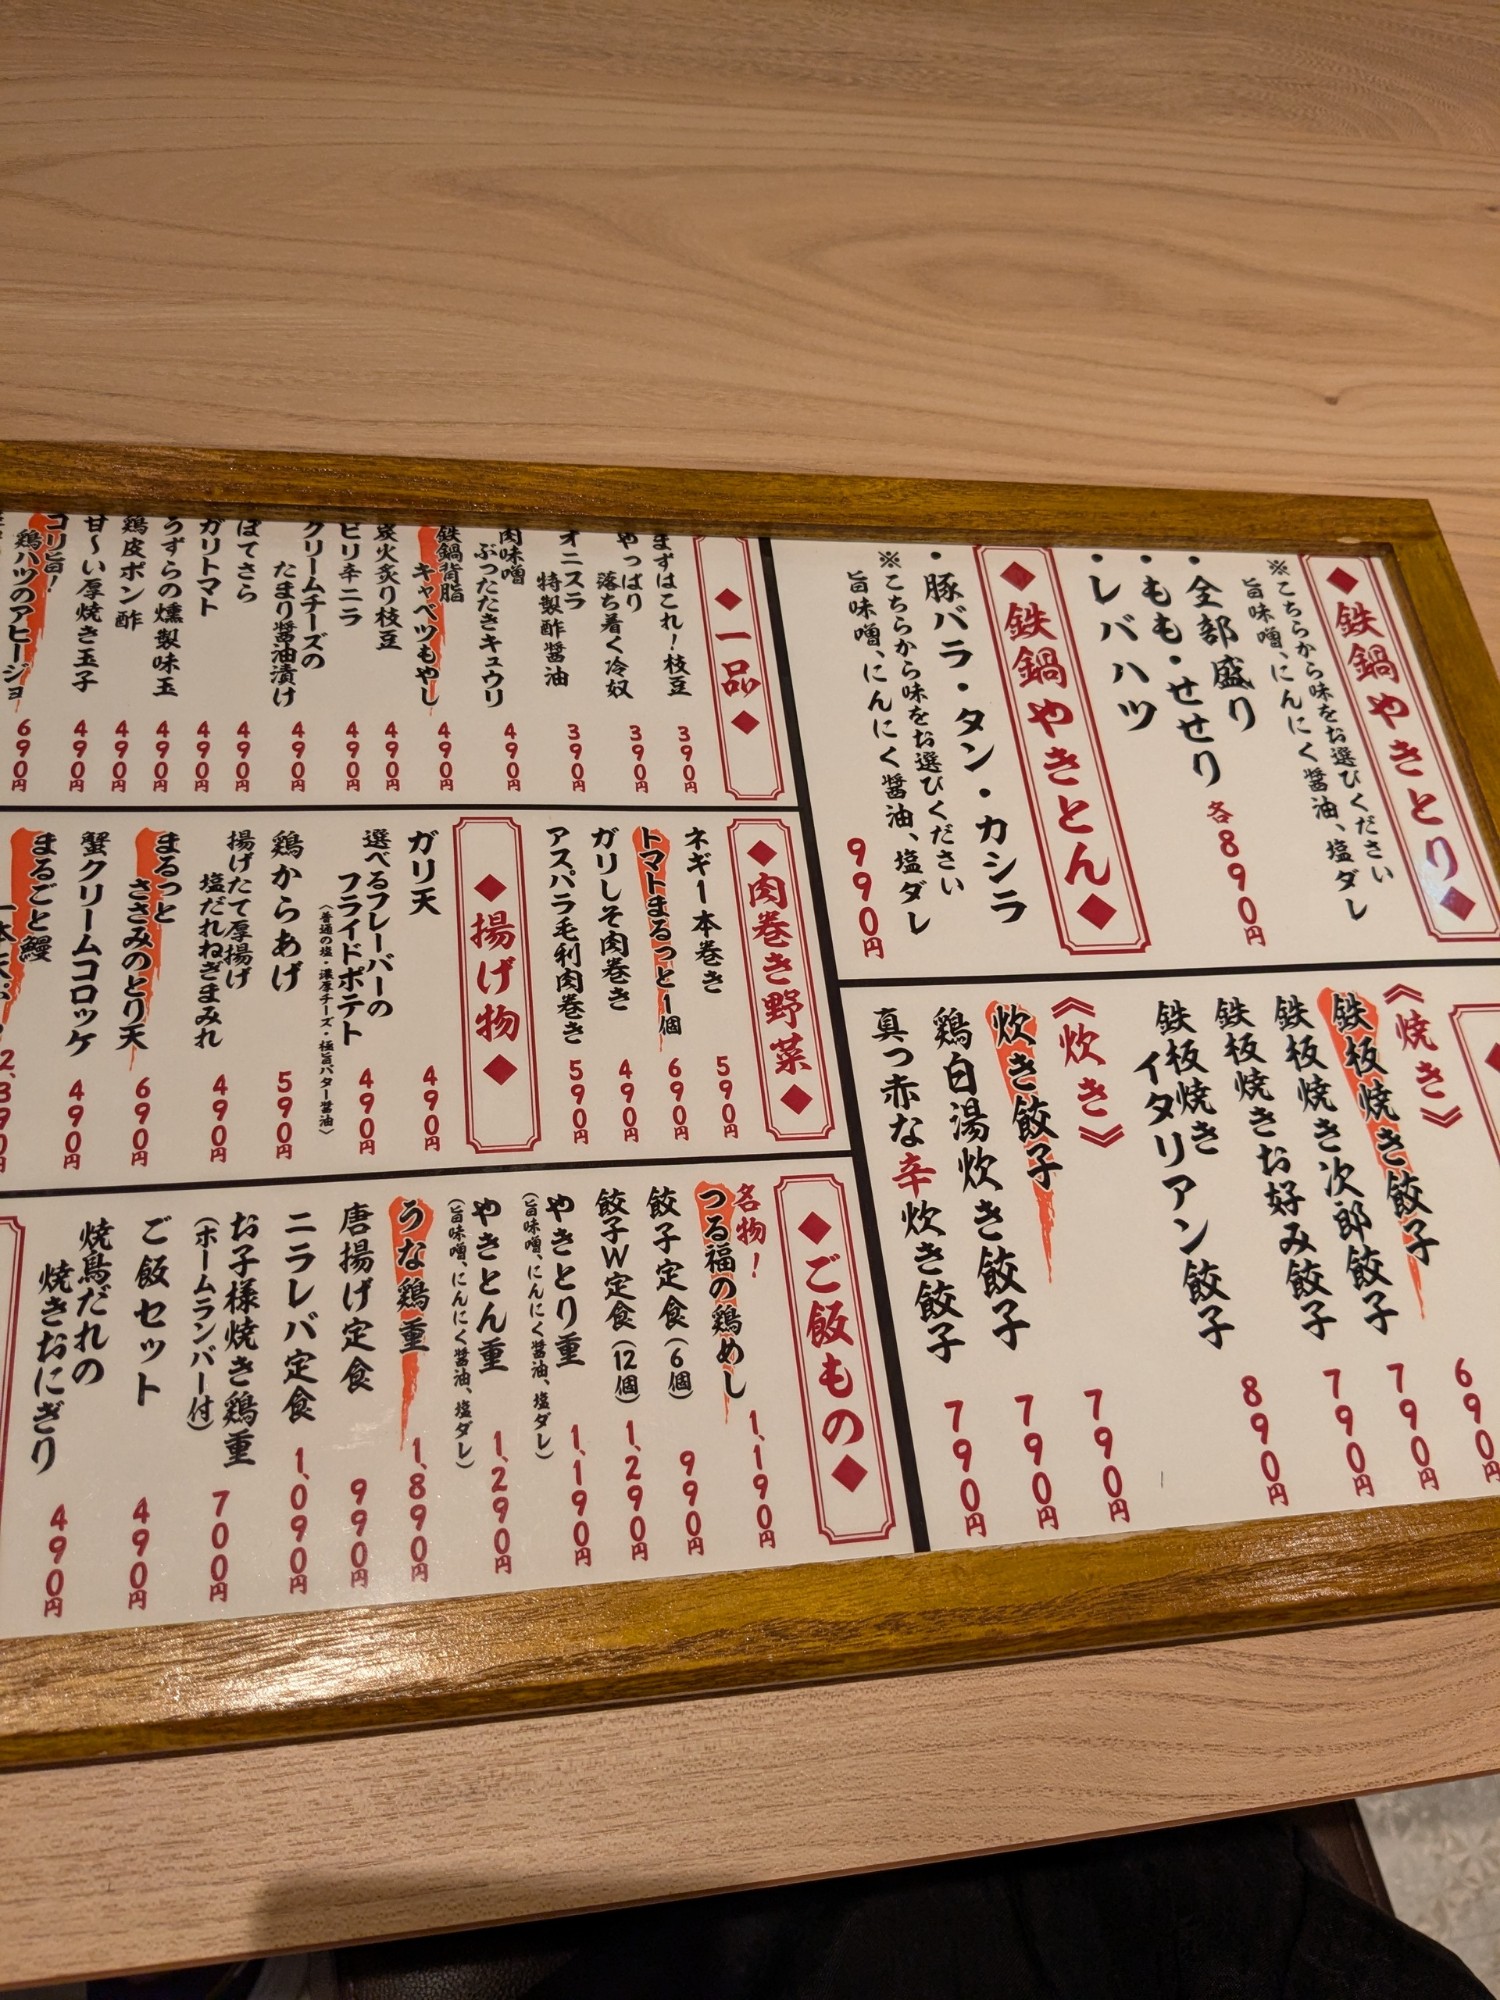 ◆鉄鍋やきとり◆
※こちらから味をお選びください
旨味噌、にんにく醤油、塩ダレ
・全部盛り
・もも・せせり
・レバハツ
各890円
◆鉄鍋やきとん◆
※こちらから味をお選びください
旨味噌、にんにく醤油、塩ダレ
・豚バラ・タン・カシラ
990円
《焼き》
鉄板焼き餃子
690円
鉄板焼き次郎餃子
790円
鉄板焼きお好み餃子
790円
鉄板焼き
イタリアン餃子
890円
《炊き》
炊き餃子
790円
鶏白湯炊き餃子
790円
真っ赤な辛炊き餃子
790円
◆一品◆
まずはこれ!枝豆
390円
やっぱり
落ち着く冷奴
390円
オニスラ
特製酢醤油
390円
肉味噌
ぶったたきキュウリ
490円
鉄鍋背脂
キャベツもやし
490円
炭火炙り枝豆
490円
ピリ辛ニラ
490円
クリームチーズの
たまり醤油漬け
490円
ぽてさら
490円
ガリトマト
490円
うずらの燻製味玉
490円
鶏皮ポン酢
490円
甘〜い厚焼き玉子
490円
コリ旨!
鶏ハツのアヒージョ
690円
◆肉巻き野菜◆
ネギ1本巻き
590円
トマトまるっと1個
690円
ガリしそ肉巻き
490円
アスパラ毛利肉巻き
590円
◆揚げ物◆
ガリ天
490円
選べるフレーバーの
フライドポテト
(普通の塩・濃厚チーズ・極旨バター醤油)
490円
鶏からあげ
590円
揚げたて厚揚げ
塩だれねぎまみれ
490円
まるっと
ささみのとり天
690円
蟹クリームコロッケ
490円
まるごと鰻
2,390円
◆ご飯もの◆
名物!
つる福の鶏めし
1,190円
餃子定食(6個)
990円
餃子W定食(12個)
1,290円
やきとり重
(旨味噌、にんにく醤油、塩ダレ)
1,190円
やきとん重
(旨味噌、にんにく醤油、塩ダレ)
1,290円
うな鶏重
1,890円
唐揚げ定食
990円
ニラレバ定食
1,090円
お子様焼き鶏重
(ホームランバー付)
700円
ご飯セット
490円
焼鳥だれの
焼きおにぎり
490円